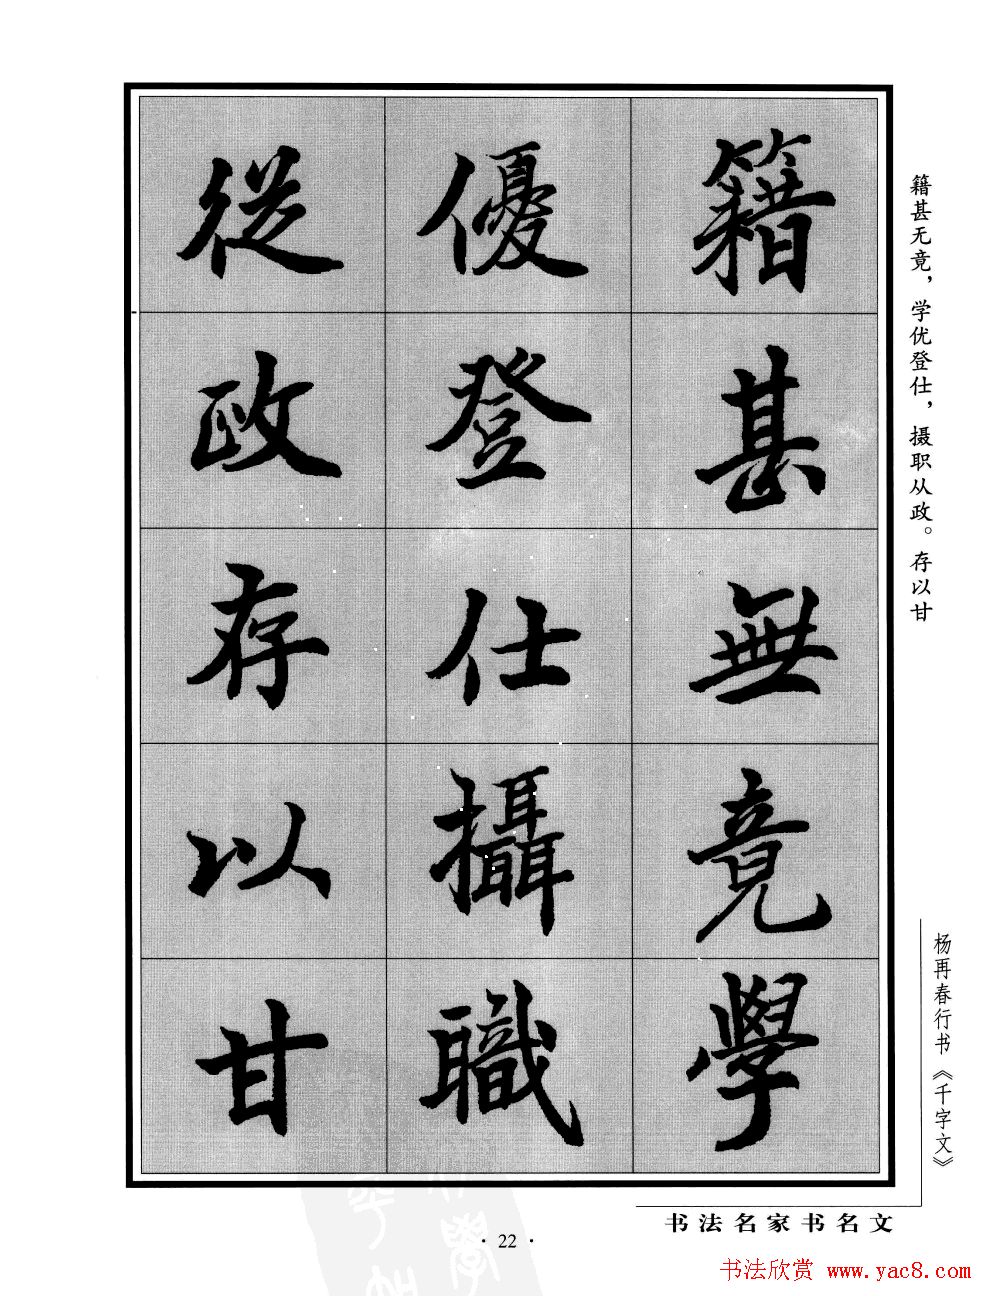 籍甚無竟學
優登仕攝職
從政存以甘
籍甚无竟，学优登仕，摄职从政。存以甘
杨再春行书《千字文》
书法名家书名文
· 22 ·
书法欣赏 www.yac8.com